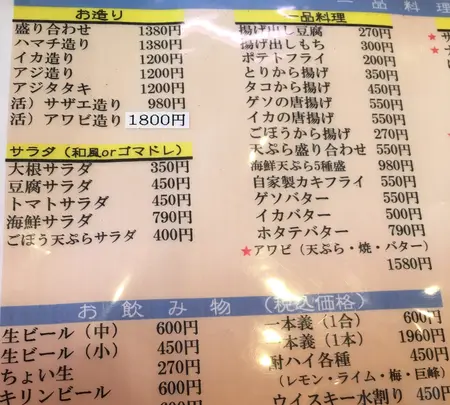 一品料理
お造り
盛り合わせ 1380円
ハマチ造り 1380円
イカ造り 1200円
アジ造り 1200円
アジタタキ 1200円
活）サザエ造り 980円
活）アワビ造り 1800円
サラダ（和風orゴマドレ）
大根サラダ 350円
豆腐サラダ 450円
トマトサラダ 450円
海鮮サラダ 790円
ごぼう天ぷらサラダ 400円
一品料理
揚げ出し豆腐 270円
揚げ出しもち 300円
ポテトフライ 200円
とりから揚げ 350円
タコから揚げ 450円
ゲソの唐揚げ 550円
イカの唐揚げ 550円
ごぼうから揚げ 270円
天ぷら盛り合わせ 550円
海鮮天ぷら5種盛 980円
自家製カキフライ 550円
ゲソバター 550円
イカバター 500円
ホタテバター 790円
★アワビ（天ぷら・焼・バター）
1580円
お飲み物（税込価格）
生ビール（中） 600円
生ビール（小） 450円
ちょい生 270円
キリンビール 600円
一本義（1合） 600円
一本義（1本） 1960円
酎ハイ各種 450円
（レモン・ライム・梅・巨峰）
ウイスキー水割り 450